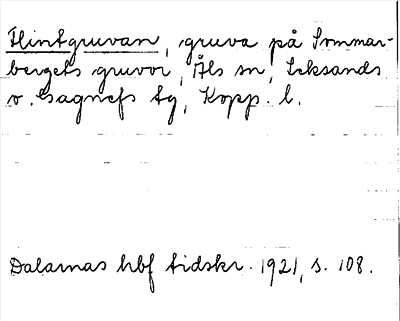 Flintgruvan, gruva på Sommar-
bergets gruvor, Åls sn, Leksands
o. Gagnefs tg, Kopp. l.
Dalarnas hbf tidskr. 1921, s. 108.